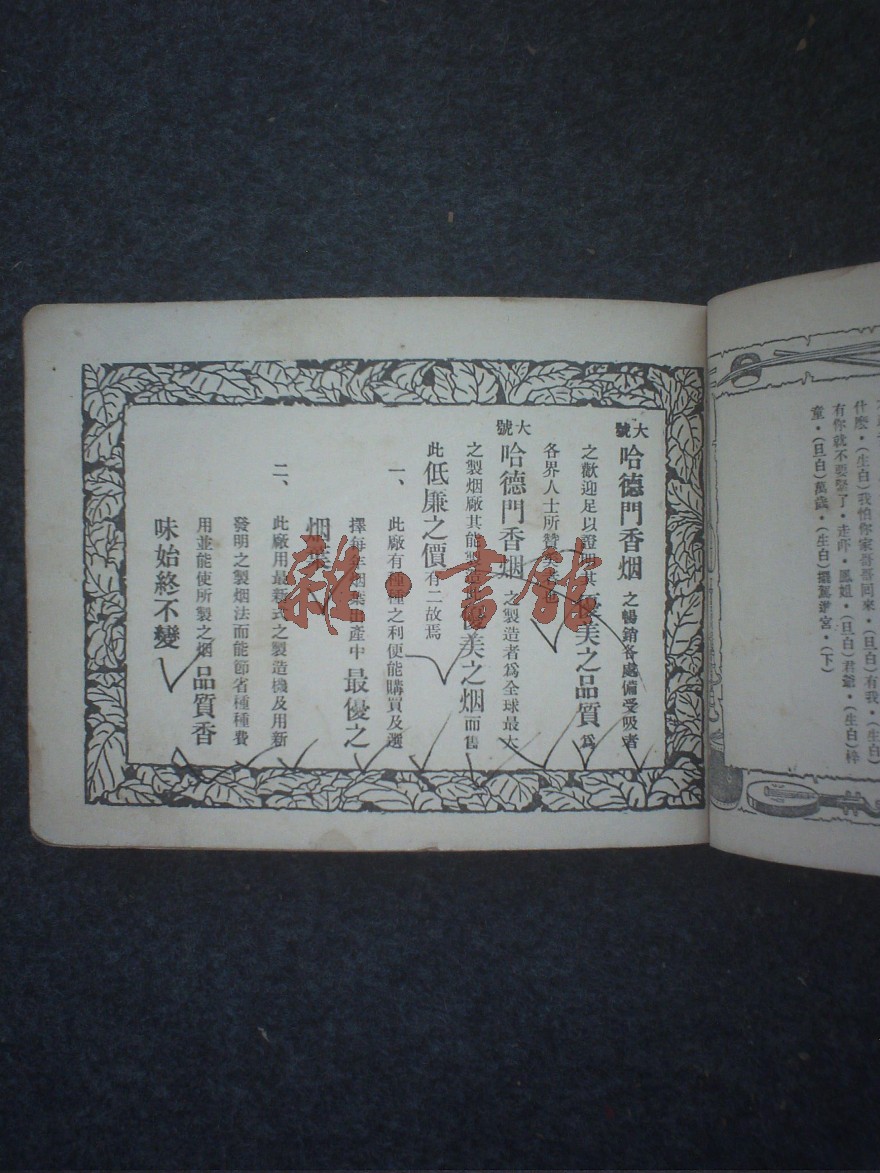 什麼・(生白)我怕你家哥哥回來・(旦白)有我・(生白)
有你就不要緊了・走吓・鳳姐・(旦白)君爺・(生白)梓
童・(旦白)萬歲・(生白)擺駕進宮・(下)
大號哈德門香烟之暢銷各處備受吸者
之歡迎足以證明其優美之品質爲
各界人士所贊
大號哈德門香烟之製造者爲全球最大
之製烟廠其能製造此優美之烟而售
此低廉之價有二故焉
一、此廠有種種之利便能購買及選
擇每年烟葉出產中最優之
烟葉
二、此廠用最新式之製造機及用新
發明之製烟法而能節省種種費
用並能使所製之烟品質香
味始終不變
雜·書館